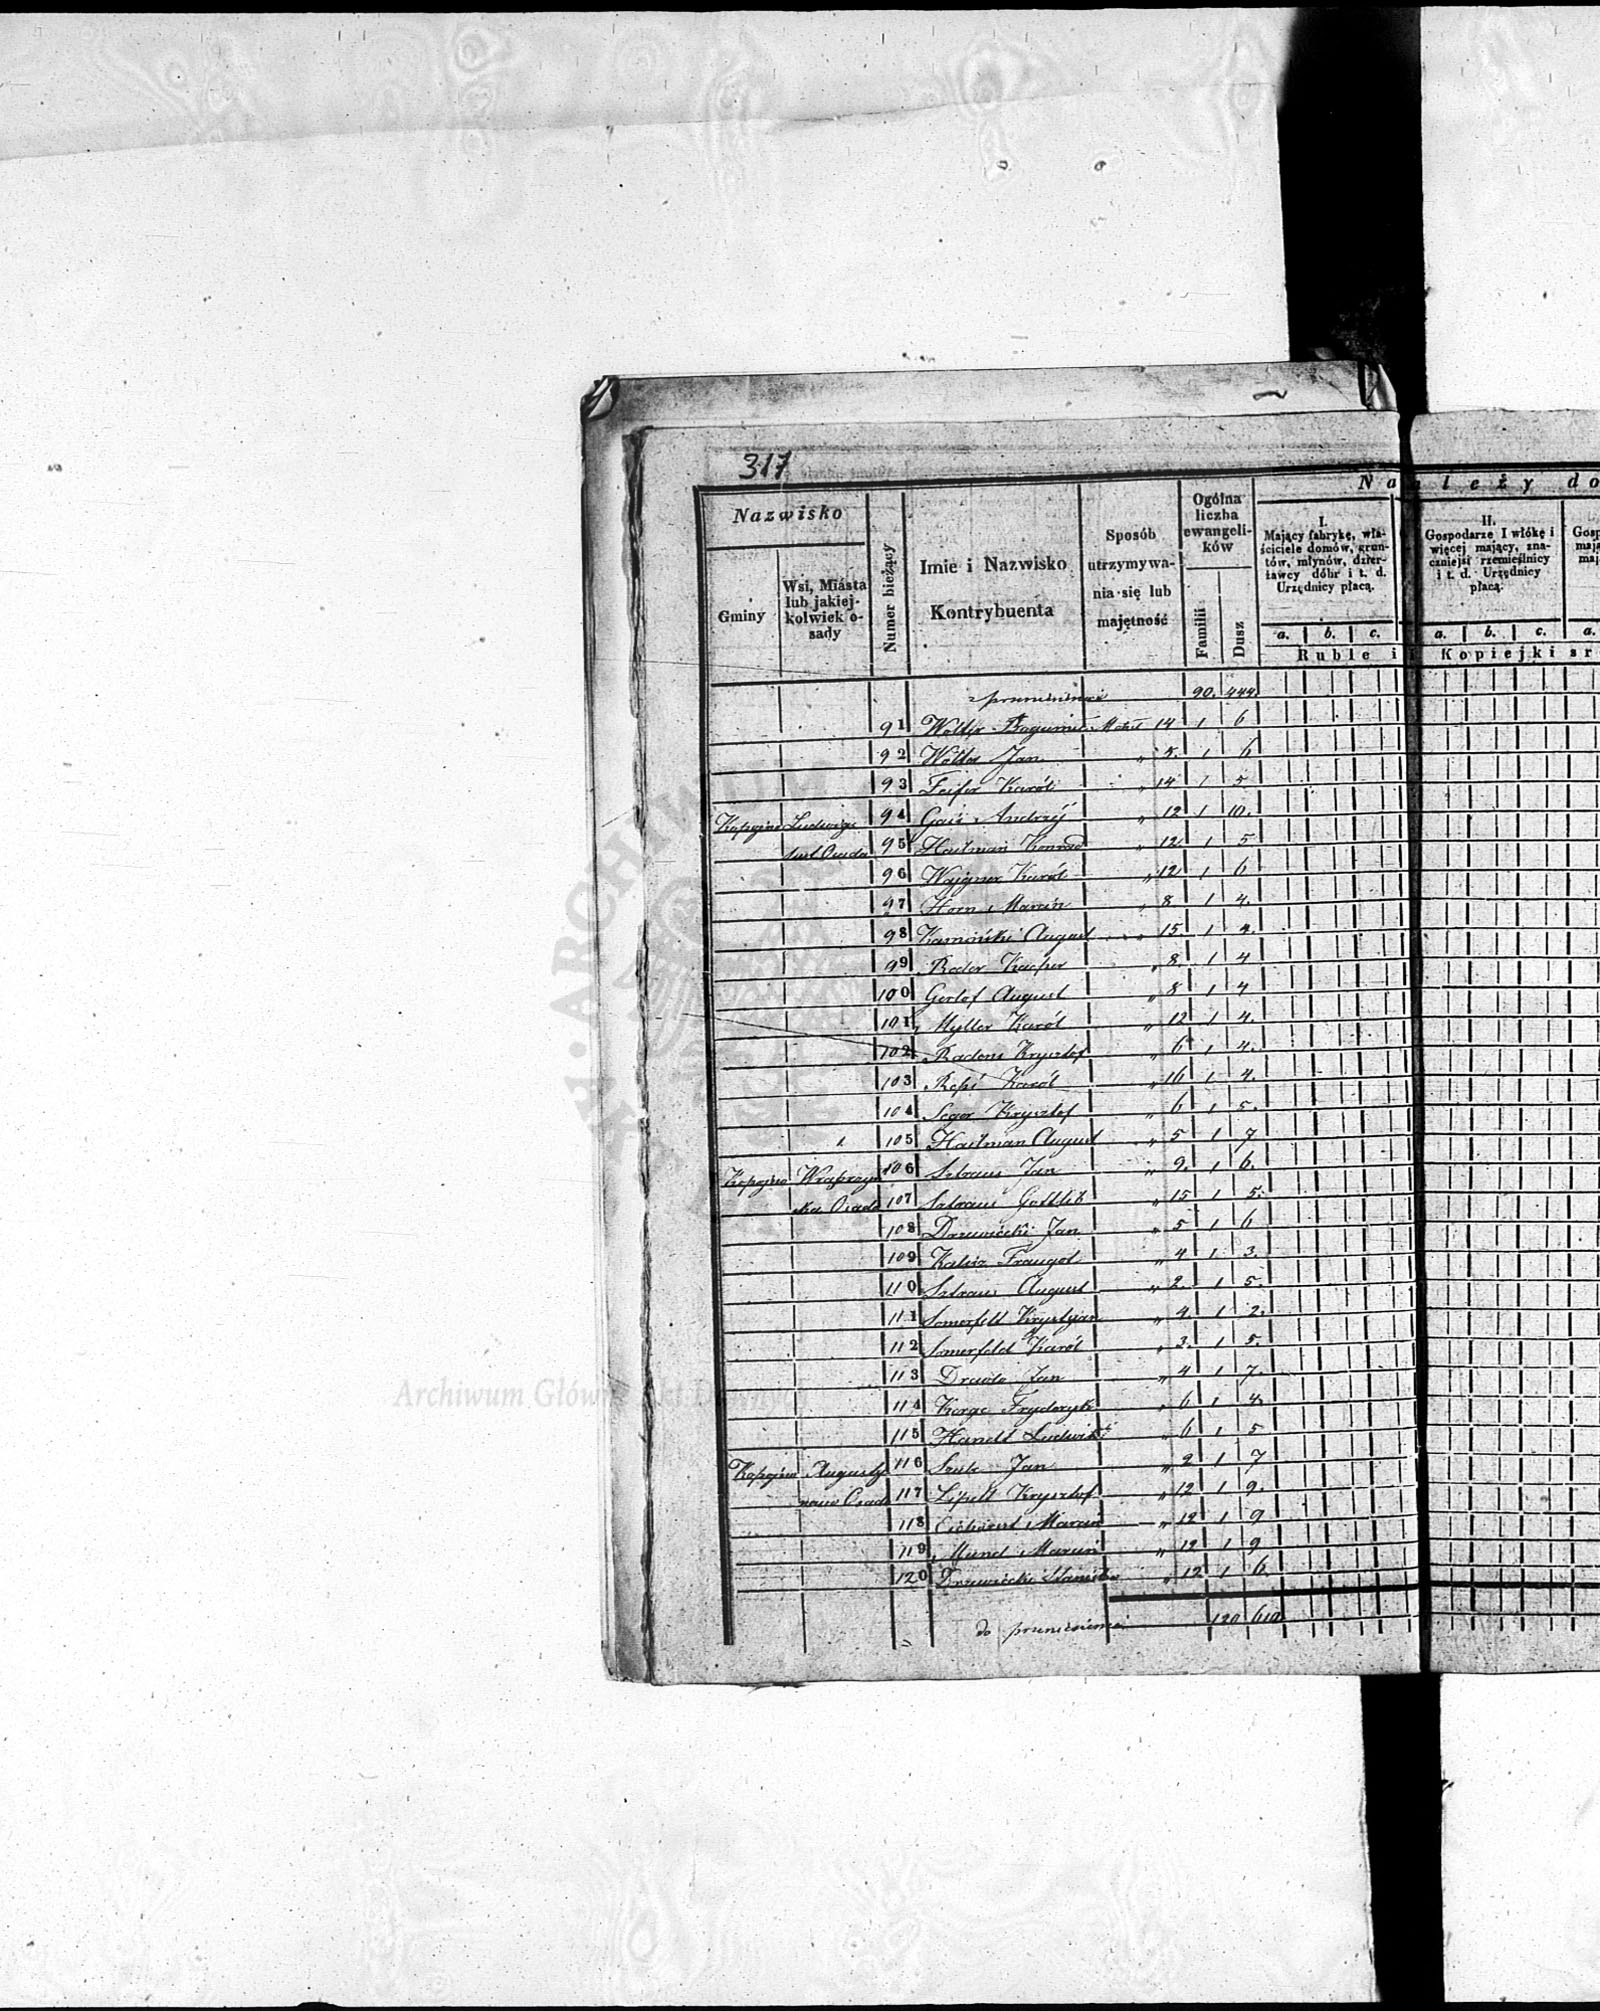 317
Nazwisko
Gminy
Wsi, Miásta lub jakiej-kolwiek o-sady
Numer bieżący
Imie i Nazwisko
Kontrybuenta
Sposób utrzymywa-nia się lub majętność
Ogólna liczba ewangeli-ków
Familii
Dusz
Należy do
I.
Mający fabrykę, wła-ściciele domów, grun-tów, młynów, dzier-żawcy dóbr i t. d. Urzędnicy płacą.
II.
Gospodarze I włókę i więcej mający, zna-czniejsi rzemieślnicy i t. d. Urzędnicy płacą.
a. b. c. a. b. c. a.
Ruble i Kopiejki sr
z przeniesienia 90. 444.
91 Bogumił 14 1 6
92 Wolter Jan " 1 6
93 Fejfer Karól " 14 1 5
94 Andrzéj " 12 1 10.
Osada 95 Hartman Konrad " 12 1 5
96 Wajgner Karól " 12 1 6
97 Horn Marcin " 8 1 4.
98 Kamiński August " 15. 1 4.
99 Rader Kacper " 8. 1 4
100 Gerlof August " 8 1 4
101 Myller Karól " 12 1 4.
102 Krysztof " 6 1 4.
103 Karól " 16 1 4.
104 Seger Krysztof " 6 1 5.
105 Hartman August " 5 1 7
106 Sztraus Jan " 9. 1 6.
Osada 107 Sztraus Gottlib " 15 1 5.
108 Drzewiecki Jan " 5 1 6
109 " 4 1 3.
110 Sztraus August " 2. 1 5.
111 Somerfeld Krystyan " 4. 1 2.
112 Somerfeld Karól " 3. 1 5.
113 Jan " 4 1 7.
114 Korge Fryderyk " 6 1 4.
115 Handt Ludwik " 6 1 5
Augusty 116 Szulc Jan " 2 1 7
nowo Osada 117 Krysztof " 12 1 9.
118 Marcin " 12 1 9
119 Mund Marcin " 12 1 9
120 Drzewiecki " 12 1 6.
do przeniesienia 120 610
Archiwum Główne Akt Dawnych